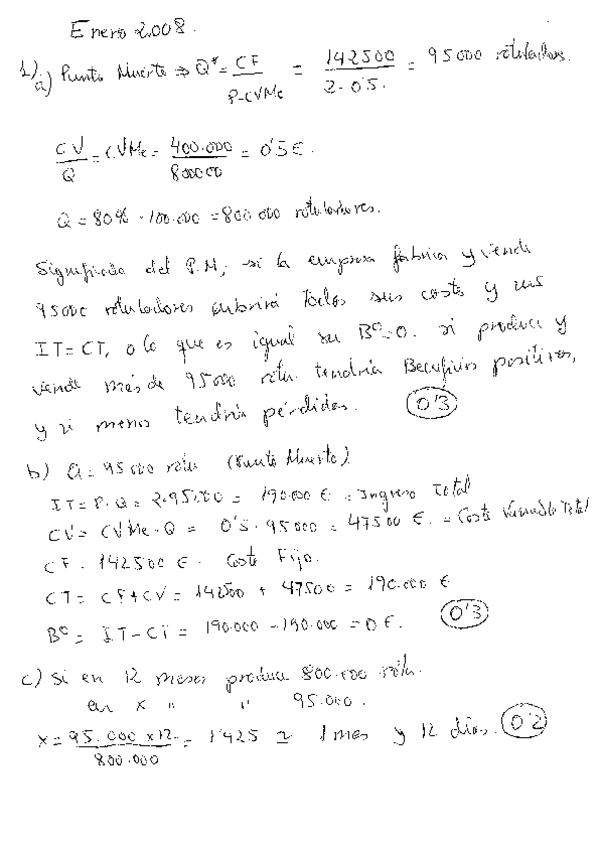 Enero 2008.
1).
a) Punto Muerto ⇒ Q* = CF / P-CVMe = 142500 / 2-0'5. = 95000 rotuladores.
CV / Q = CVMe = 400.000 / 800000 = 0'5€.
Q = 80% · 100.000 = 800 000 rotuladores.
Significado del P.M; si la empresa fabrica y vende
95000 rotuladores cubrirá todos sus costes y sus
IT=CT, o lo que es igual su Bº=0. si produce y
vende más de 95000 rotu. tendría Beneficios positivos,
y si menos tendría pérdidas. 0'3
b) Q = 95000 rotu (Punto Muerto)
IT = P.Q = 2.95000 = 190.000 € = Ingreso Total
CV = CVMe.Q = 0'5. 95000 = 47500 €. = Coste Variable Total
CF. 142500 €. Coste Fijo.
CT = CF+CV = 14200 + 47500 = 190.000 €
Bº = IT-CT = 190.000 - 190.000 = 0€. 0'3
c) Si en 12 meses produce 800.000 rotu.
en x " " 95.000.
x = 95.000 x12 / 800.000 = 1'425 ≃ 1 mes y 12 días. 0'2